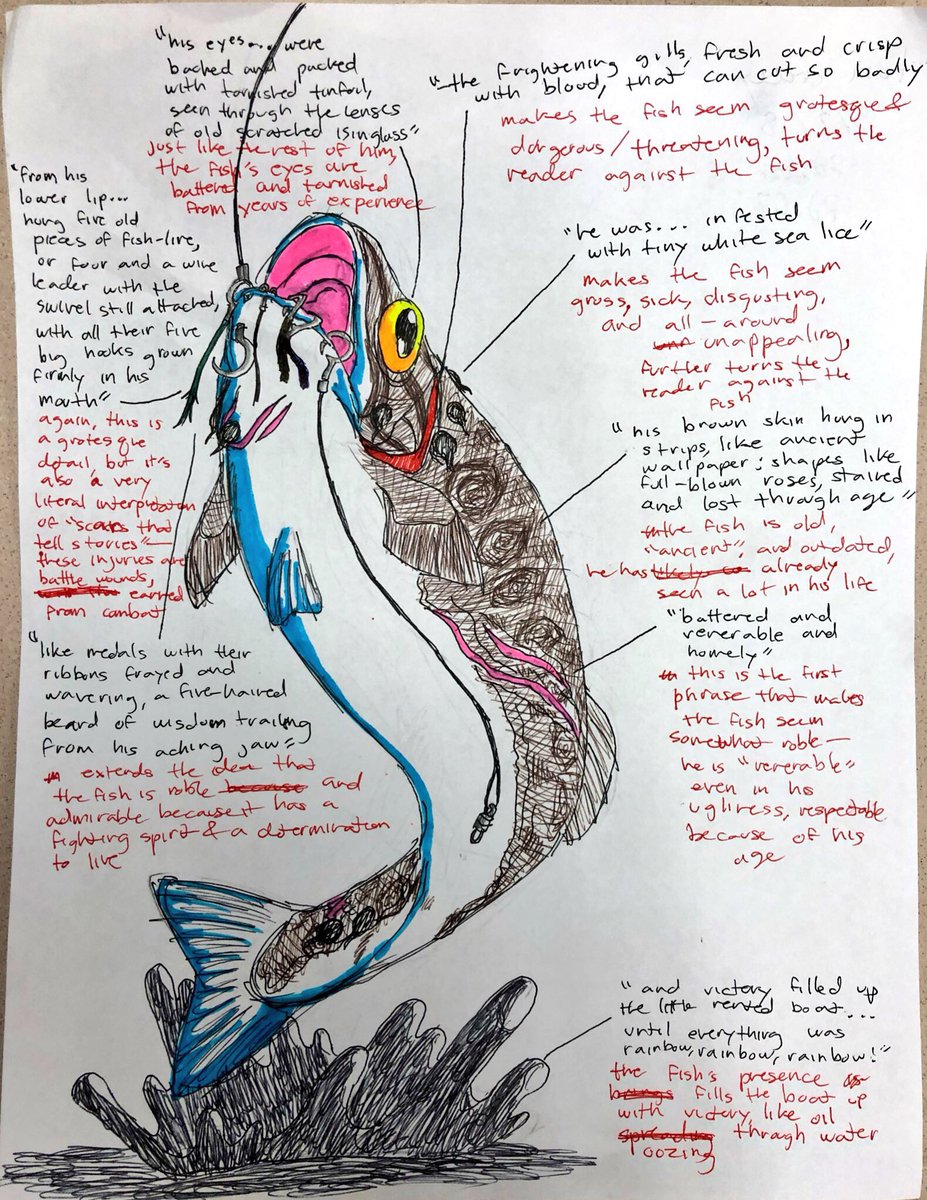 "his eyes... were
backed and packed
with tarnished tinfoil,
seen through the lenses
of old scratched isinglass"
just like the rest of him,
the fish's eyes are
battered and tarnished
from years of experience
"the frightening gills, fresh and crisp
with blood, that can cut so badly
makes the fish seem grotesque &
dangerous/threatening, turns the
reader against the fish
"from his
lower lip...
hung five old
pieces of fish-line,
or four and a wire
leader with the
swivel still attached,
with all their five
big hooks grown
firmly in his
mouth"
again, this is
a grotesque
detail, but it's
also a very
literal interpretation
of "scars that
tell stories" —
these injuries are
battle wounds,
earned
from combat
"he was... infested
with tiny white sea lice"
makes the fish seem
gross, sick, disgusting,
and all-around
unappealing,
further turns the
reader against the
fish
"his brown skin hung in
strips, like ancient
wallpaper: shapes like
full-blown roses, stained
and lost through age"
the fish is old,
"ancient", and outdated,
he has likely so already
seen a lot in his life
"battered and
venerable and
homely"
this is the first
phrase that makes
the fish seem
somewhat noble —
he is "venerable"
even in his
ugliness, respectable
because of his
age
"like medals with their
ribbons frayed and
wavering, a five-haired
beard of wisdom trailing
from his aching jaw"
extends the idea that
the fish is noble because and
admirable because it has a
fighting spirit & a determination
to live
"and victory filled up
the little rented boat...
until everything was
rainbow, rainbow, rainbow!"
the fish's presence
brings fills the boat up
with victory, like oil
spreading through water
oozing